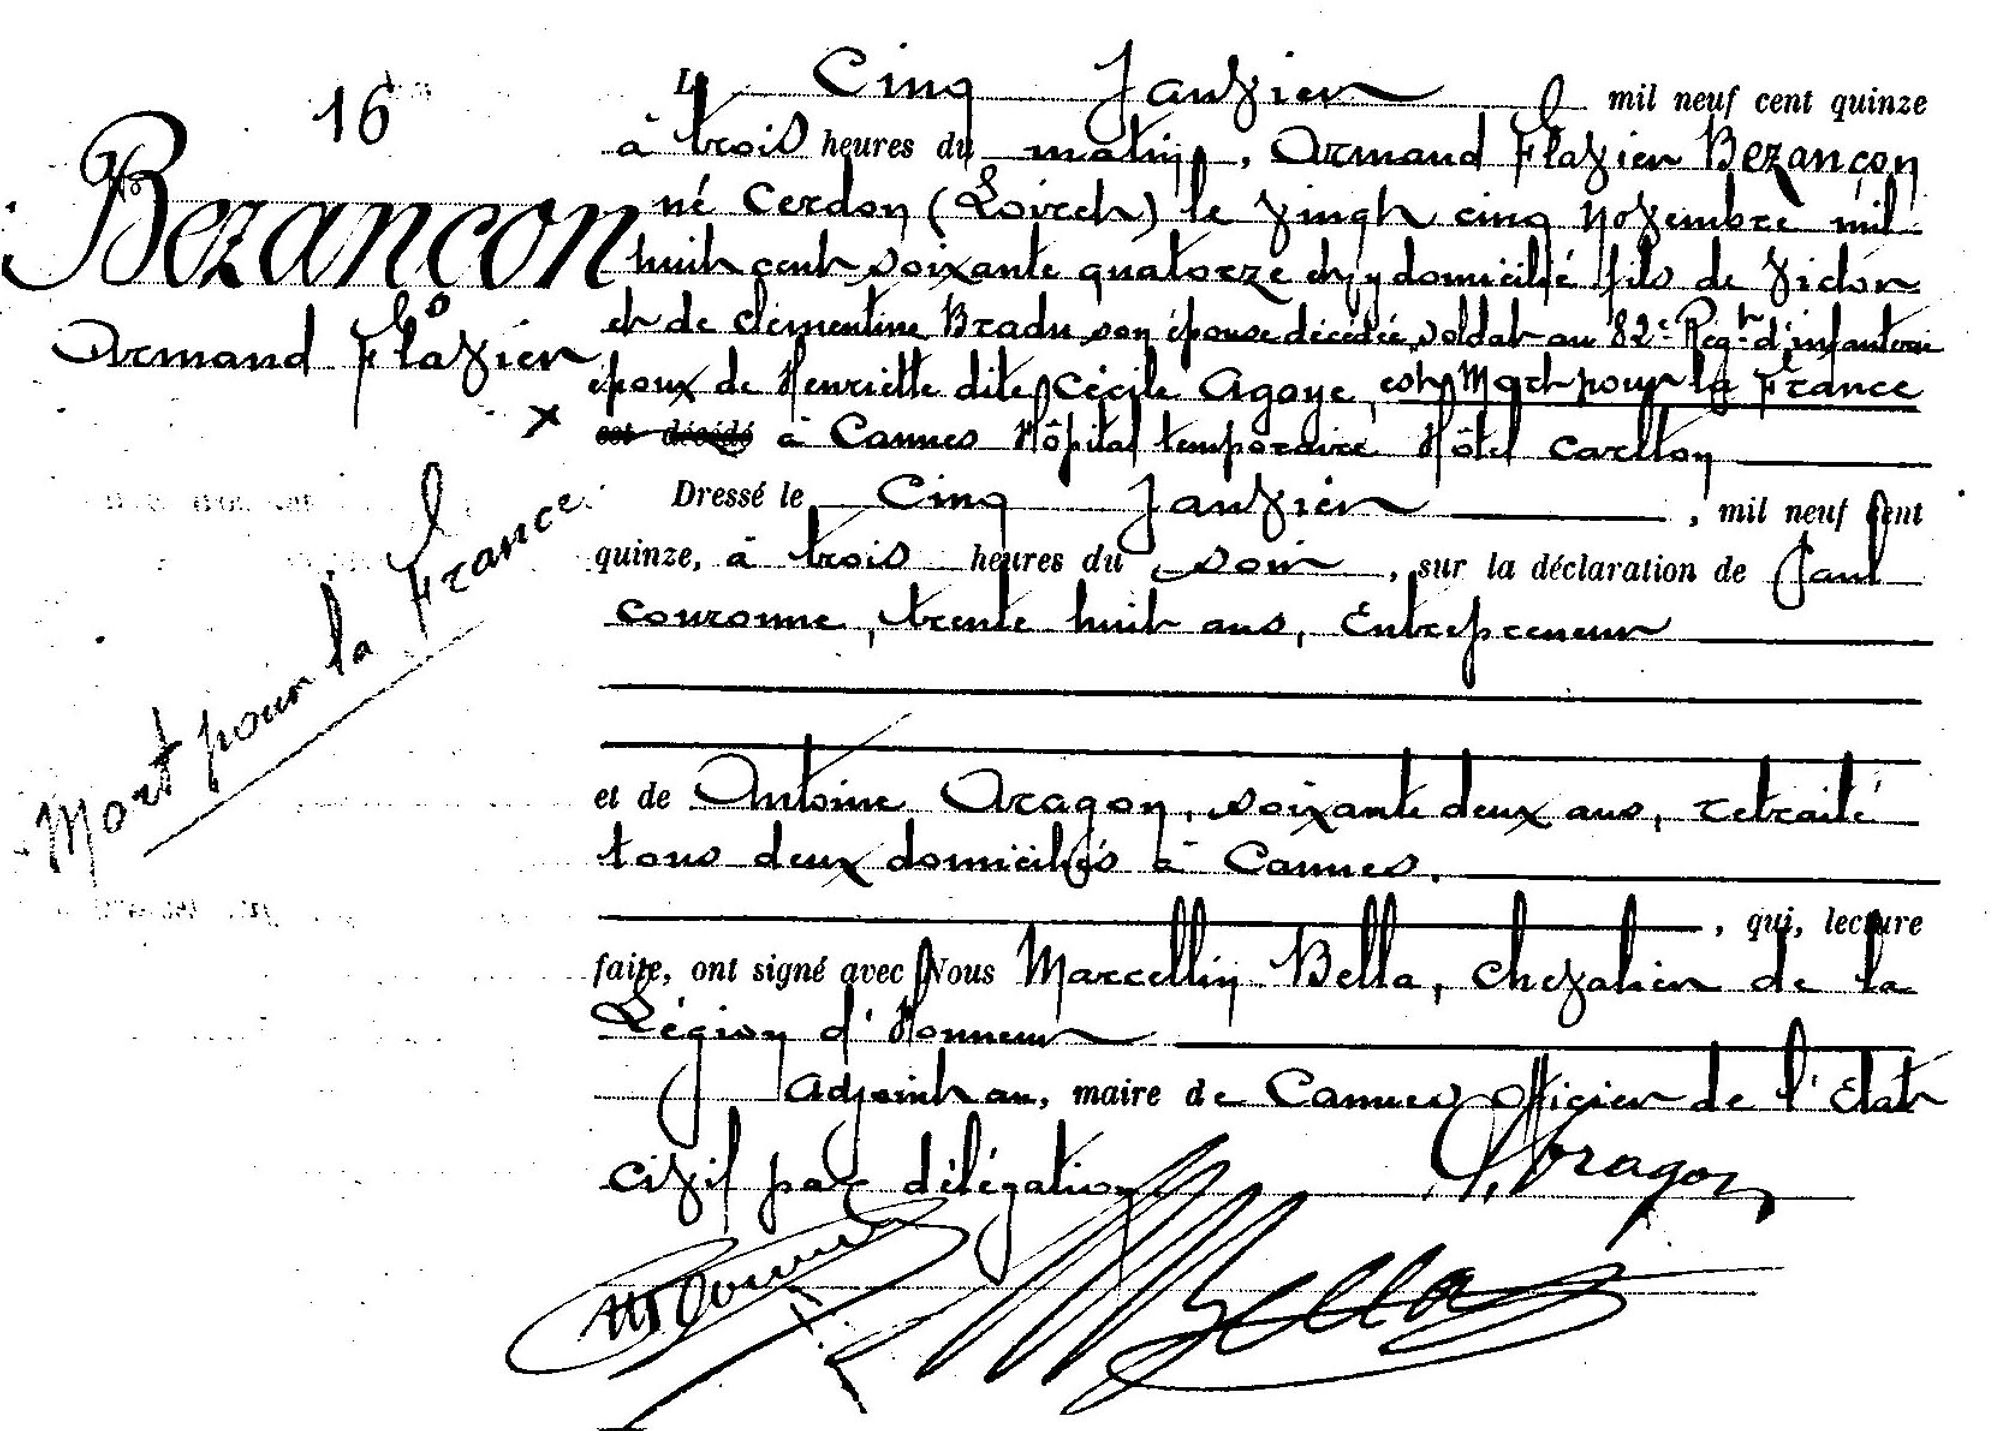 16
Bezançon
Armand Flavien
x
Mort pour la France
Le Cinq Janvier mil neuf cent quinze
à trois heures du matin, Armand Flavien Bezançon
né Cerdon (Loiret) le vingt cinq novembre mil
huit cent soixante quatorze et y domicilié fils de Victor
et de Clémentine Bradu son épouse décédée, soldat au 82e Régt d'infanterie
époux de Henriette dite Cécile Agoye, est Mort pour la France
est décédé à Cannes Hôpital temporaire Hôtel Carlton
Dressé le Cinq Janvier, mil neuf cent
quinze, à trois heures du soir, sur la déclaration de Paul
Couronne, trente huit ans, Entrepreneur
et de Antoine Aragon, soixante deux ans, retraité
tous deux domiciliés à Cannes.
, qui, lecture
faite, ont signé avec Nous Marcellin Bella, Chevalier de la
Légion d'Honneur
Adjoint au, maire de Cannes Officier de l'Etat
civil par délégation
A. Aragon
Bella